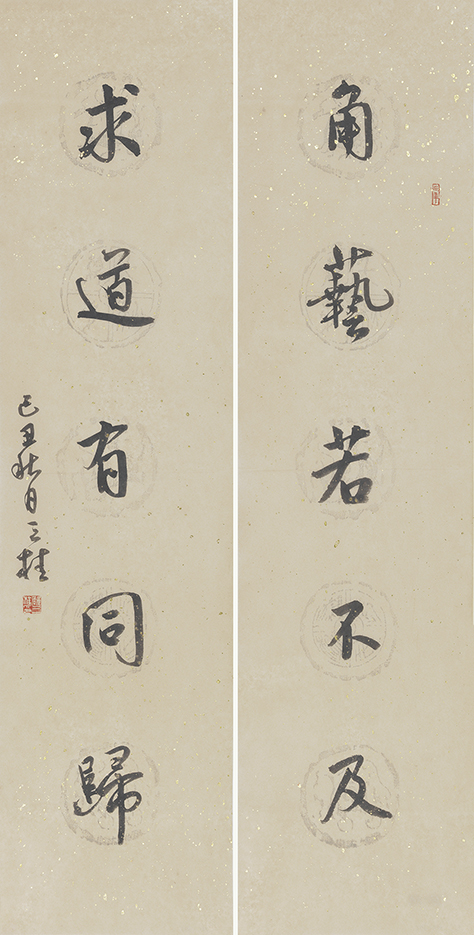 角藝若不及
求道有同歸
己丑秋日三桂